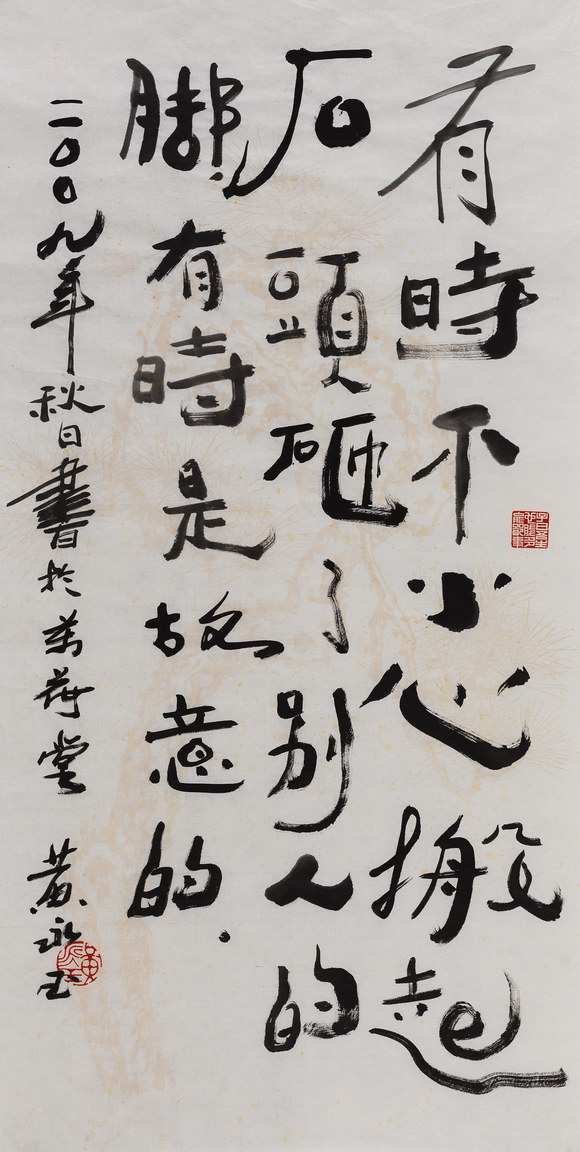 有時不小心搬起
石頭砸了別人的
脚,有時是故意的.
二〇〇九年秋日書於萬荷堂 黄永玉